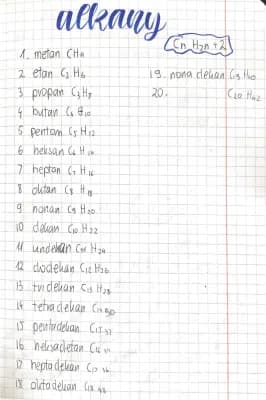 alkany
CnH2n+2
1. metan CH4
2 etan C2H6
3 propan C3H8
4 butan C4H10
5 pentan C5H12
6 heksan C6H14
7 heptan C7H16
8 oktan C8H18
9 nonan C9H20
10 dekan C10H22
11 undekan C11H24
12 dodekan C12H26
13 tridekan C13H28
14 tetradekan C14H30
15 pentadekan C15
16 heksadekan C16
17 heptadekan C17
18 oktadekan C18
19. nonadekan C19H40
20. C20H42